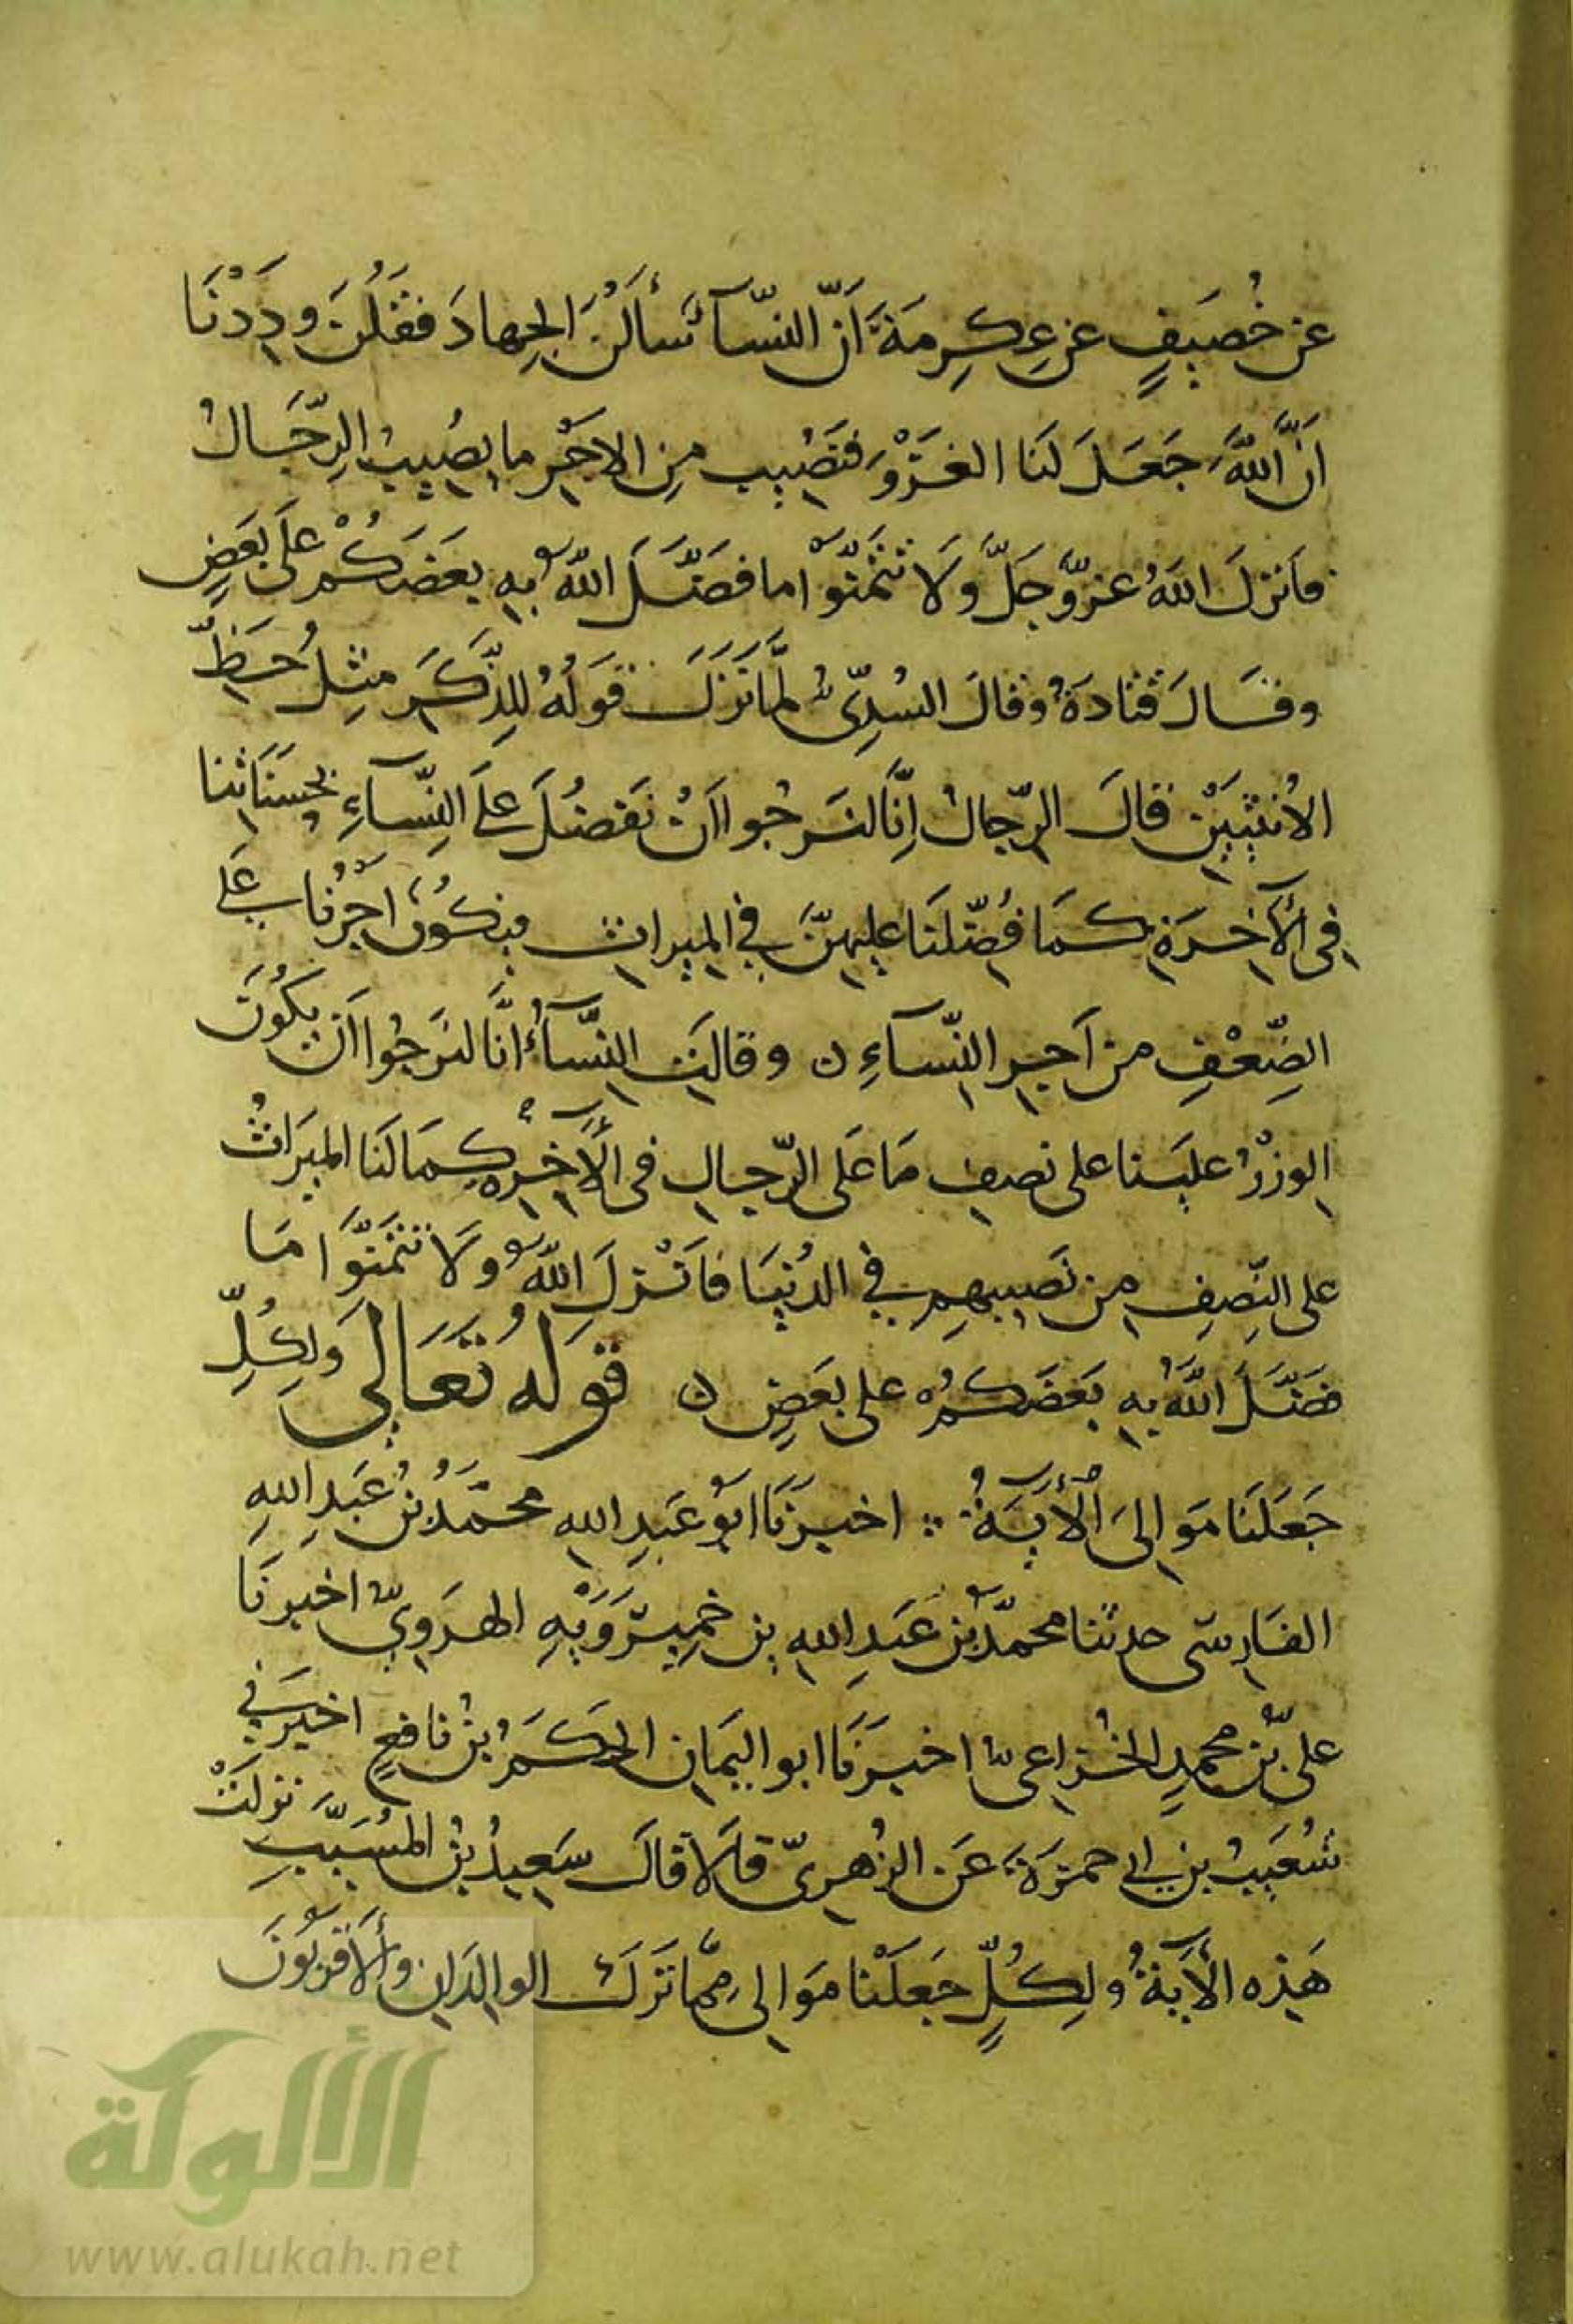 عن خُصَيفٍ عن عِكرِمَةَ اَنّ النسّآ سَأَلَنْ الجِهادَ فقَلُنَ ودِدْنَا
انَّ اللّهَ جَعَلَ لَنا الغَزْوَ فنَصُيب مِن الاجْرِ ما يصُيبُ الرِّجَالُ
فاَنزلَ اللهُ عزّوَجَلَّ وَلَا تتمَنّوْا ما فضَّلَ اللّهُ بِهِ بعَضَكُمْ عَلَى بَعَضٍ
وقَالَ قتادَةُ وقالَ السُدِّىُّ لمَّا نَزَلَ قوَلُهُ لِلذّكَرِ مثِلُ حَظِّ
الأُنثيَيْنِ قالَ الرّجالُ اِنَّا لنَرجُوا اَنْ نفَضُلَ عَلَى النِّسآءِ بحسَنَاتنا
فِى الآخِرَةِ كمَا فُضّلنَا عليهِنَّ فِي الميراث فيكوُنُ اجْرُنا عَلَى
الضِّعْفِ من اَجرِ النّسآءِ ن وقالتِ النِسَّآءُ انَّا لنرَجُوا اَن يكُونَ
الوزرُ عليَنا على نصِف مَا عَلَى الرّجال فى الآخِرَةِ كمَا لَنَا الميَراثُ
على النِّصِفِ من نَصيبهِم فِي الدُنيَا فاَنْزلَ اللّهُ وَلَا تتمَنَّوا مَا
فضَّلَ اللهُ بهِ بَعَضَكمُ على بعَضٍ ن قوَلهُ تعَالَى وَلِكُلٍّ
جَعَلَنا مَوالىَ الآيَةُ ؞ اخبرَنَا ابوُ عَبدِ اللهِ محمّدُ بنُ عَبدِ اللهِ
الفَارِسّى حدثنا محمّدُ بْنُ عَبَدِ اللهِ بن خمِيرَوَيْهِ الهرَوِيّ اخبرنَا
علىّ بْنُ محمدٍ الخُزاعىّ اخبرَنَا ابو اليمَانِ الحكَمُ بنُ نافعٍ اخبرَنِي
شُعَيبُ بن ابي حمزَةَ عَن الزُهرِىّ قاَلَ قاَلَ سَعِيدُ بنُ المسُيَّبِ نزلَتْ
هَذِه الأَيَةُ ولِكُلٍّ جعَلَنْا مَوَالىِ ممَّا تَرَك الوالدَانِ وألاَقربُونَ
الألوكة
www.alukah.net